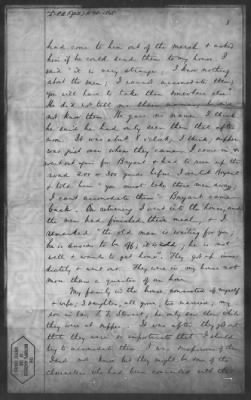 3
had come to him out of the marsh & asked
him if he could send them to my house. I
said "it is very strange; I know nothing
about the men; I cannot accommodate them;
you will have to take them somewhere else"
He did not tell me their names; he did
not know them. He gave no names. I think
he said he had only seen them that after
noon. It was about 6 o'clock, I think supper
was just over when they came. I came in &
went out again for Bryant & had to run up the
road 200 or 300 yards before I overtook Bryant
& told him "you must take these men away;
I can't accommodate them". Bryant came
back. On returning I went into the house, and
the men had finished their meal, &
remarked "the old man is waiting for you;
he is anxious to be off; it is cold; he is not
well & wants to get home". They got up
, & went out. They were in my house not
more than a quarter of an hour.
My family in the house consisted of myself
& wife, & daughter, all grown,
son in law E. T. Stewart; he only saw them while
they were at supper. It was after they got out
that they were so importunate that I should
try to accommodate them. I was suspicious of them.
know but they might be some of the
characters who had been connected with